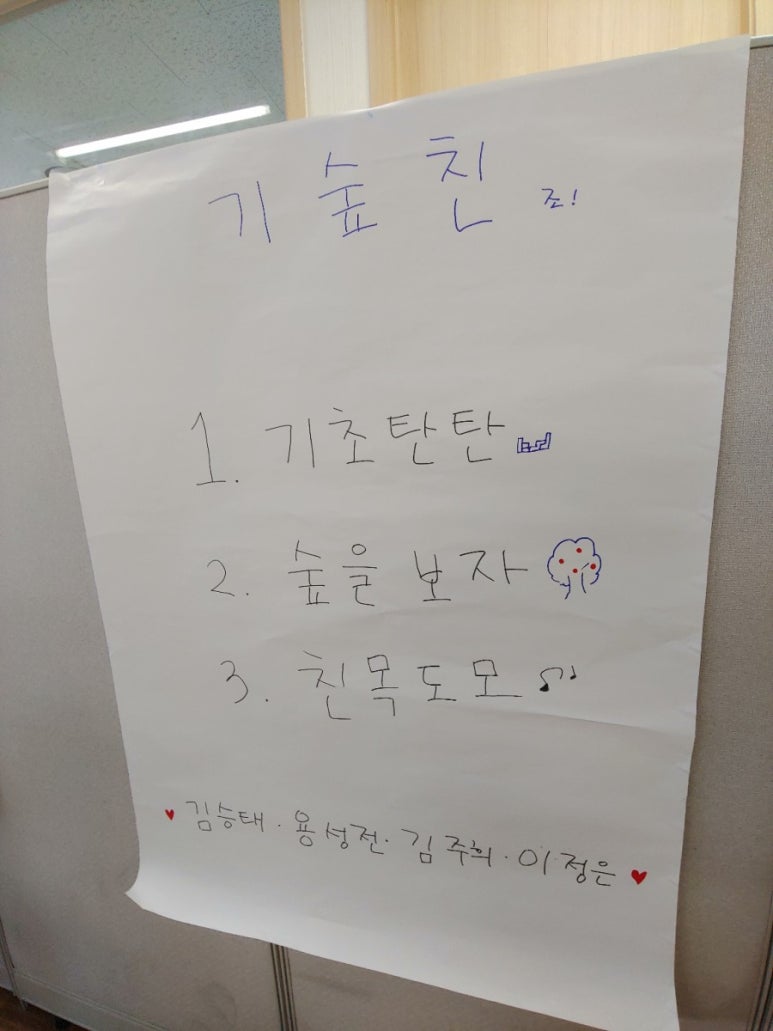 기 숲 친 조!
1. 기초탄탄
2. 숲을 보자
3. 친목도모
김승태 · 용성전 · 김주희 · 이정은